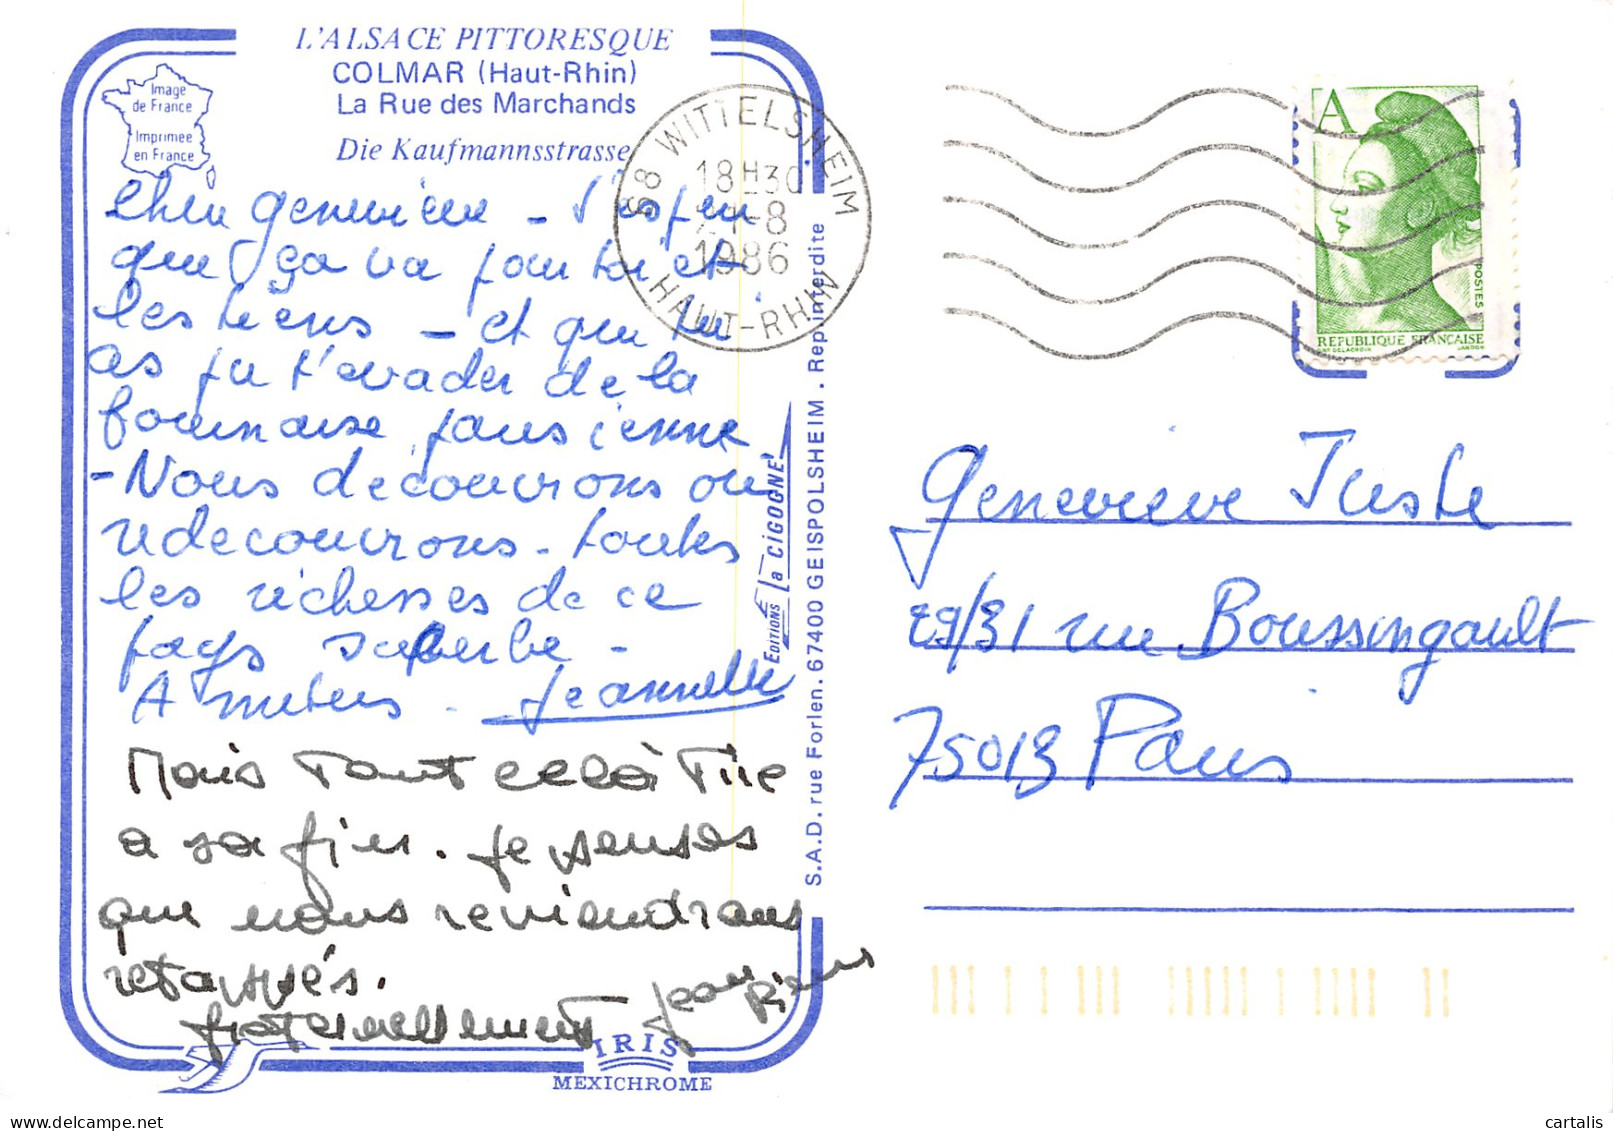 L'ALSACE PITTORESQUE
COLMAR (Haut-Rhin)
La Rue des Marchands
Die Kaufmannsstrasse
Image
de France
Imprimée
en France
Chère Geneviève - J'espère
que ça va pour toi et
les tiens - et que tu
as pu t'évader de la
fournaise parisienne
- Nous découvrons ou
redécouvrons - toutes
les richesses de ce
pays superbe -
A Jeannette
Mais tout cela tire
a sa fin. Je penses
que nous reviendrons
retappés.
fraternellement Jean Pierre
68 WITTELSHEIM
18H30
-8
1986
HAUT-RHIN
EDITIONS La CIGOGNE
S.A.D. rue Forlen. 67400 GEISPOLSHEIM . Rep. interdite
IRIS
MEXICHROME
A
POSTES
REPUBLIQUE FRANÇAISE
D'AP. DELACROIX GANDON
Geneviève Juste
29/31 rue Boussingault
75013 Paris
cartalis
www.delcampe.net